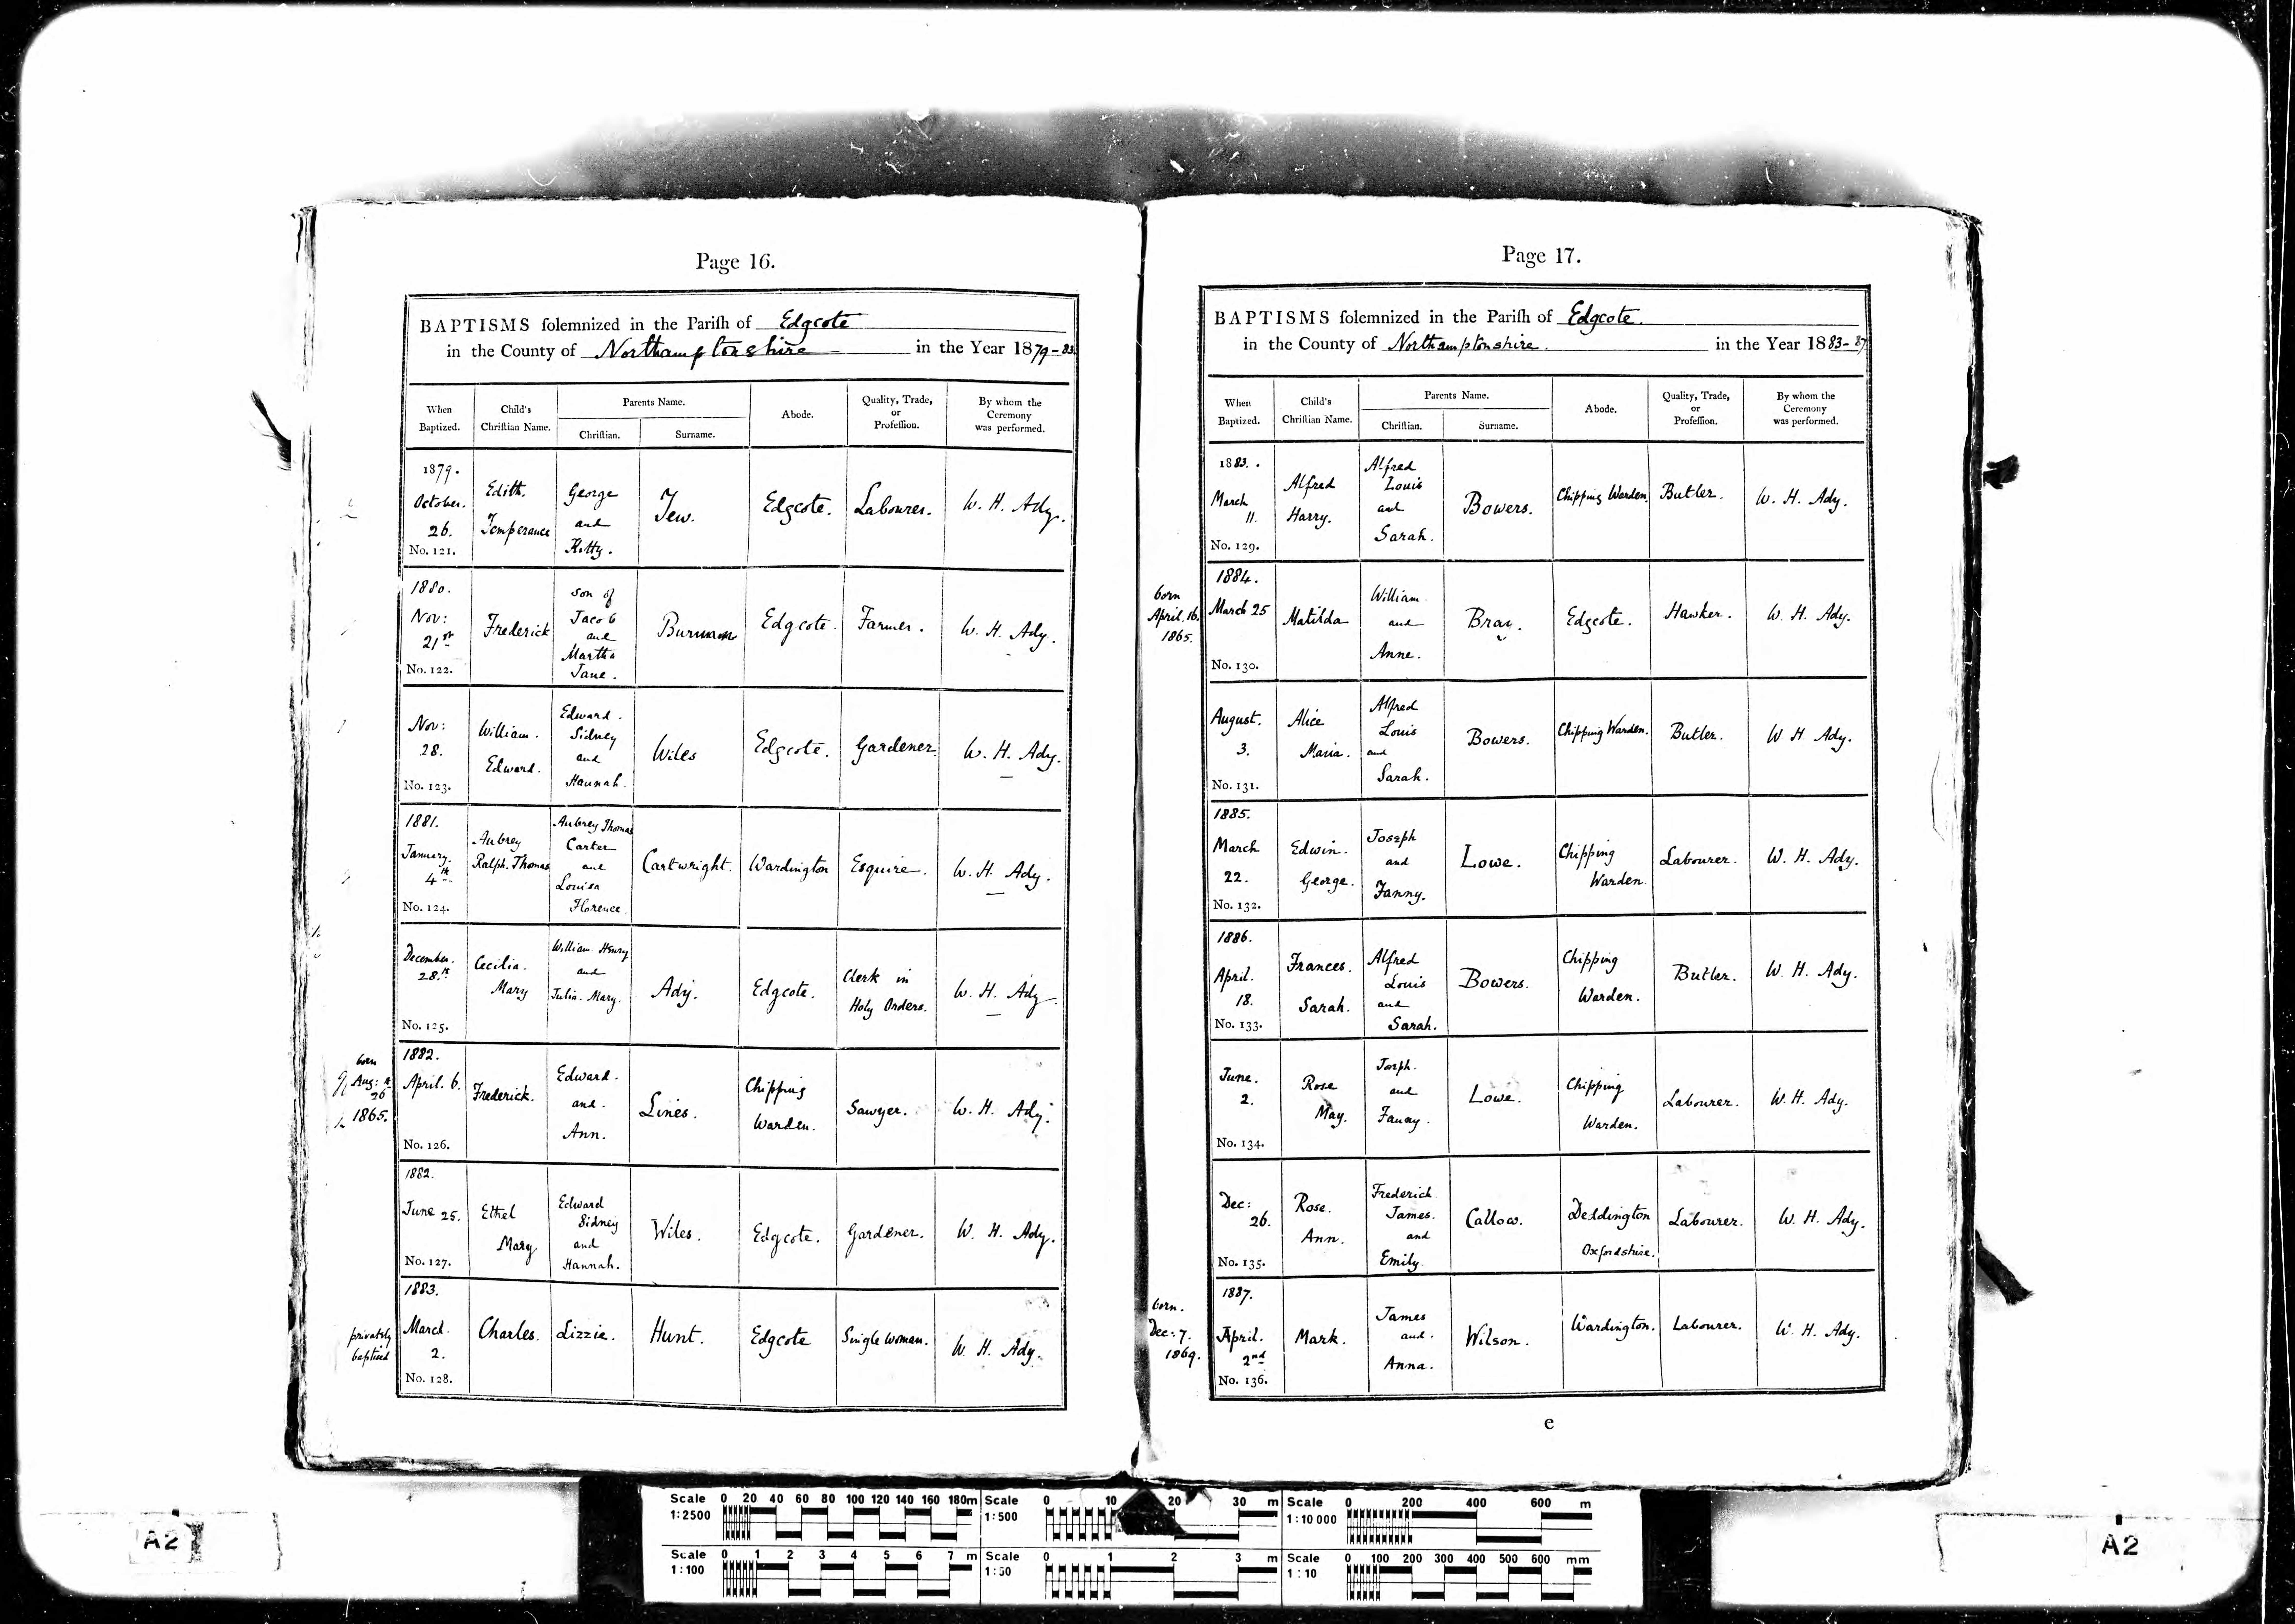 Page 16.
BAPTISMS solemnized in the Parish of Edgcote
in the County of Northamptonshire in the Year 1879-83.
When Baptized.
Child's Christian Name.
Parents Name.
Christian.
Surname.
Abode.
Quality, Trade, or Profession.
By whom the Ceremony was performed.
1879. October. 26. No. 121.
Edith. Temperance
George and Kitty.
Tew.
Edgcote.
Labourer.
W. H. Ady.
1880. Nov: 21st No. 122.
Frederick
son of Jacob and Martha Jane.
Burman
Edgcote.
Farmer.
W. H. Ady.
Nov: 28. No. 123.
William. Edward.
Edward. Sidney and Hannah.
Wiles
Edgcote.
Gardener.
W. H. Ady.
1881. January. 4th No. 124.
Aubrey Ralph. Thomas
Aubrey Thomas Carter and Louisa Florence.
Cartwright.
Wardington
Esquire.
W. H. Ady.
December. 28.th No. 125.
Cecilia. Mary
William Henry and Julia. Mary.
Ady.
Edgcote.
Clerk in Holy Orders.
W. H. Ady.
born Aug: 26 1865.
1882. April. 6. No. 126.
Frederick.
Edward. and. Ann.
Lines.
Chipping Warden.
Sawyer.
W. H. Ady.
1882. June 25. No. 127.
Ethel Mary
Edward Sidney and Hannah.
Wiles.
Edgcote.
Gardener.
W. H. Ady.
privately baptised
1883. March. 2. No. 128.
Charles.
Lizzie.
Hunt.
Edgcote
Single Woman.
W. H. Ady.
Page 17.
BAPTISMS solemnized in the Parish of Edgcote.
in the County of Northamptonshire. in the Year 1883-87
When Baptized.
Child's Christian Name.
Parents Name.
Christian.
Surname.
Abode.
Quality, Trade, or Profession.
By whom the Ceremony was performed.
1883. March 11. No. 129.
Alfred Harry.
Alfred Louis and Sarah.
Bowers.
Chipping Warden.
Butler.
W. H. Ady.
born April. 16. 1865.
1884. March 25 No. 130.
Matilda
William and Anne.
Bray.
Edgcote.
Hawker.
W. H. Ady.
August. 3. No. 131.
Alice Maria.
Alfred Louis and Sarah.
Bowers.
Chipping Warden.
Butler.
W H Ady.
1885. March 22. No. 132.
Edwin. George.
Joseph and Fanny.
Lowe.
Chipping Warden.
Labourer.
W. H. Ady.
1886. April. 18. No. 133.
Frances. Sarah.
Alfred Louis and Sarah.
Bowers.
Chipping Warden.
Butler.
W. H. Ady.
June. 2. No. 134.
Rose May.
Joseph. and Fanny.
Lowe.
Chipping Warden.
Labourer.
W. H. Ady.
Dec: 26. No. 135.
Rose. Ann.
Frederick James. and Emily.
Callow.
Deddington Oxfordshire.
Labourer.
W. H. Ady.
born. Dec: 7. 1869.
1887. April. 2nd No. 136.
Mark.
James and. Anna.
Wilson.
Wardington.
Labourer.
W. H. Ady.
e
Scale 1:2500 0 20 40 60 80 100 120 140 160 180m
Scale 1:500 0 10 20 30 m
Scale 1:10 000 0 200 400 600 m
Scale 1:100 0 1 2 3 4 5 6 7 m
Scale 1:50 0 1 2 3 m
Scale 1:10 0 100 200 300 400 500 600 mm
A2
A2